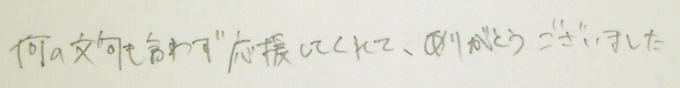 何の文句も言わず応援してくれて、ありがとうございました